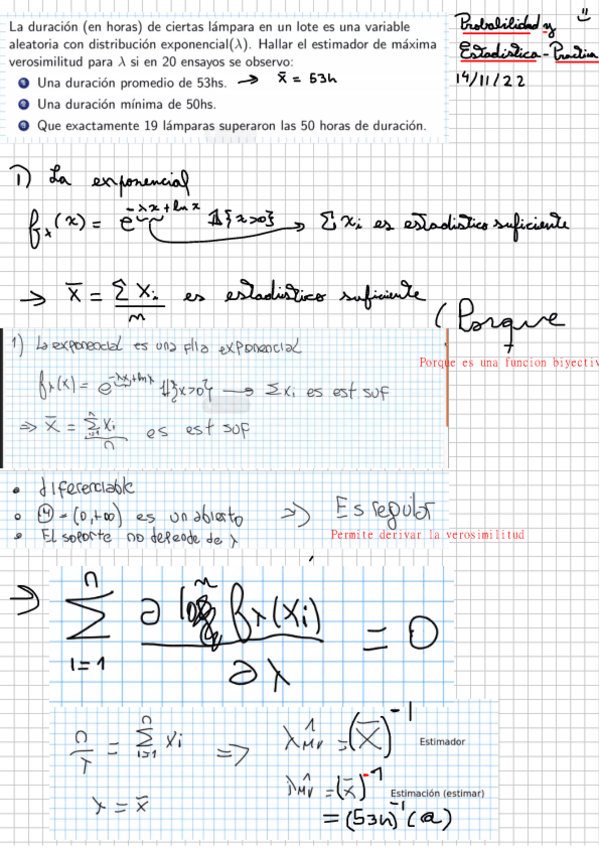 La duración (en horas) de ciertas lámpara en un lote es una variable
aleatoria con distribución exponencial(λ). Hallar el estimador de máxima
verosimilitud para λ si en 20 ensayos se observo:
1 Una duración promedio de 53hs. → x̄ = 53h
2 Una duración mínima de 50hs.
3 Que exactamente 19 lámparas superaron las 50 horas de duración.
Probabilidad y
Estadistica - Practica
14/11/22
1) La exponencial
f_x(x) = e^{-λx + ln x} 𝟙{x>0} → Σ xi es estadistico suficiente
→ X̄ = Σ Xi / n es estadistico suficiente
(Porque
Porque es una funcion biyectiv
1) La exponencial es una flia exponencial
f_λ(x) = e^{-λx + ln λ} 𝟙{x>0} → Σxi es est suf
⇒ X̄ = Σ_{i=1}^{n} Xi / n es est suf
• diferenciable
• Ⓗ = (0,+∞) es un abierto ⇒ Es regular
• El soporte no depende de λ
Permite derivar la verosimilitud
⇒ Σ_{i=1}^{n} ∂ f_λ(xi) / ∂λ = 0
= Σ_{i=1}^{n} xi ⇒ λ̂_MV = (X̄)^{-1} Estimador
= x̄ λ̂_MV = (x̄)^{-1} Estimación (estimar)
= (53h)^{-1} (a)